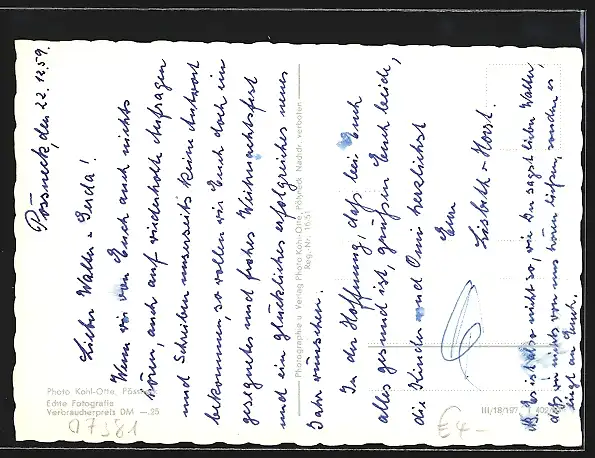 Pössneck, den 22.12.59.
Lieber Walter u. Gerda!
Wenn wir von Euch auch nichts
hören, auch auf wiederholte Anfragen
und Schreiben unserseits keine Antwort
bekommen, so wollen wir Euch doch ein
gesegnetes und frohes Weihnachtsfest
und ein glückliches erfolgreiches neues
Jahr wünschen.
In der Hoffnung, daß bei Euch
alles gesund ist, grüßen Euch beide,
die Kinder und Omi herzlichst
Eure
Lisbeth u. Horst.
Es ist also nicht so, wie Du sagst lieber Walter,
daß wir nichts von uns hören ließen, sondern es
liegt an Euch.
Photographie u. Verlag Photo Kahl-Otte, Pößneck Nachdr. verboten
Reg.-Nr. 16/51
Photo Kahl-Otte, Pößneck
Echte Fotografie
Verbraucherpreis DM —.25
07381
III/18/197
€ 4-